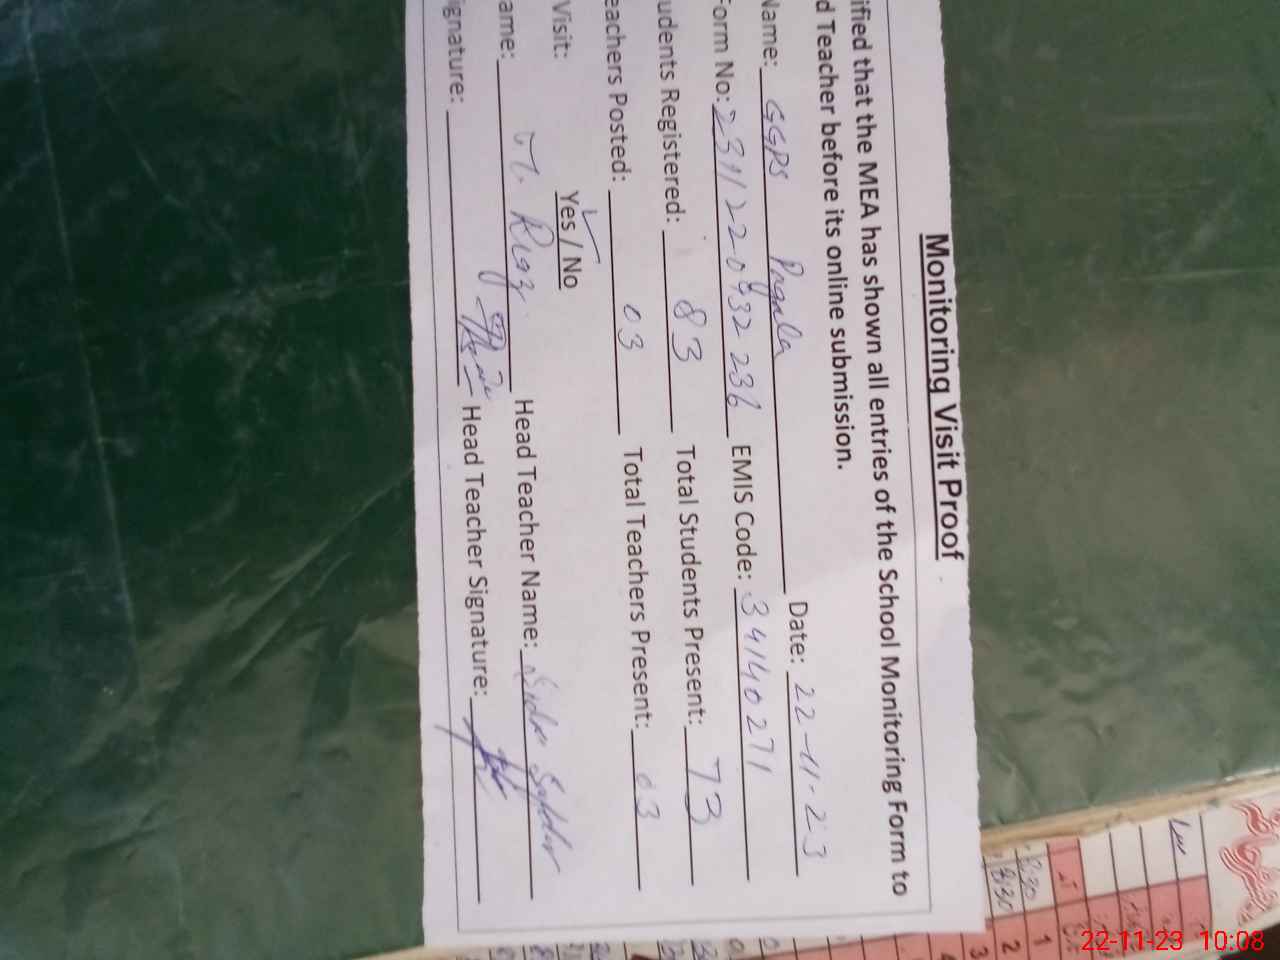 Monitoring Visit Proof
ified that the MEA has shown all entries of the School Monitoring Form to
d Teacher before its online submission.
Name: GGPS Pagala Date: 22-11-23
Form No: 231122093 2236 EMIS Code: 34140271
udents Registered: 83 Total Students Present: 73
eachers Posted: 03 Total Teachers Present: 03
Visit: Yes / No
ame: M. Riaz Head Teacher Name:
ignature: Head Teacher Signature:
8:30 1
8:30 2
3
22-11-23 10:08